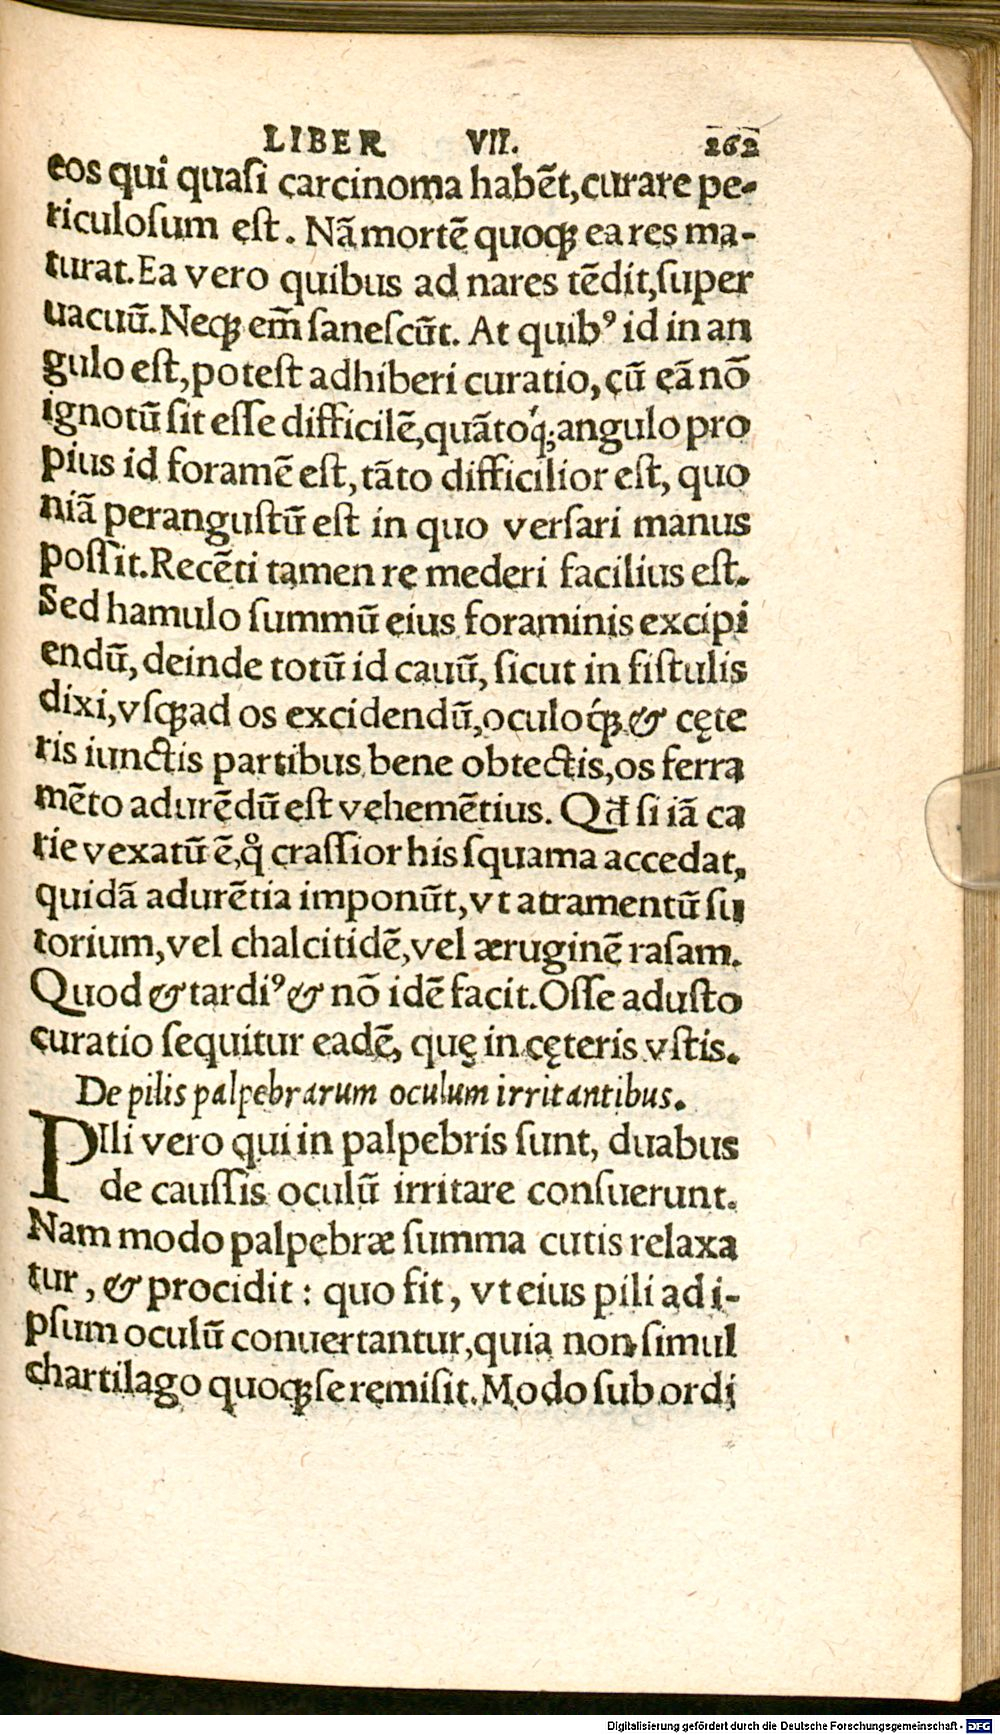 LIBER VII. 262
eos qui quaſi carcinoma habēt,curare pe-
riculoſum eſt. Nā mortē quoqꝫ ea res ma-
turat.Ea vero quibus ad nares tēdit,ſuper
uacuū.Neqꝫ em̄ ſaneſcūt. At quibꝰ id in an
gulo eſt,poteſt adhiberi curatio,cū eā nō
ignotū ſit eſſe difficilē,quātoq́;angulo pro
pius id foramē eſt,tāto difficilior eſt, quo
niā peranguſtū eſt in quo verſari manus
poſſit.Recēti tamen re mederi facilius eſt.
Sed hamulo ſummū eius foraminis excipi
endū,deinde totū id cauū, ſicut in fiſtulis
dixi,vſqꝫ ad os excidendū,oculoq́ꝫ & cęte
ris iunctis partibus bene obtectis,os ferra
mēto adurēdū eſt vehemētius. Qđ ſi iā ca
rie vexatū ē,q̊ craſſior his ſquama accedat,
quidā adurētia imponūt,vt atramentū ſu
torium,vel chalcitidē,vel æruginē raſam.
Quod & tardiꝰ & nō idē facit.Oſſe aduſto
curatio ſequitur eadē, quę in cęteris vſtis.
De pilis palpebrarum oculum irritantibus.
PIli vero qui in palpebris ſunt, duabus
de cauſſis oculū irritare conſuerunt.
Nam modo palpebræ ſumma cutis relaxa
tur, & procidit: quo fit, vt eius pili ad i-
pſum oculū conuertantur,quia non ſimul
chartilago quoqꝫ ſe remiſit.Modo ſub ordi
Digitalisierung gefördert durch die Deutsche Forschungsgemeinschaft - DFG